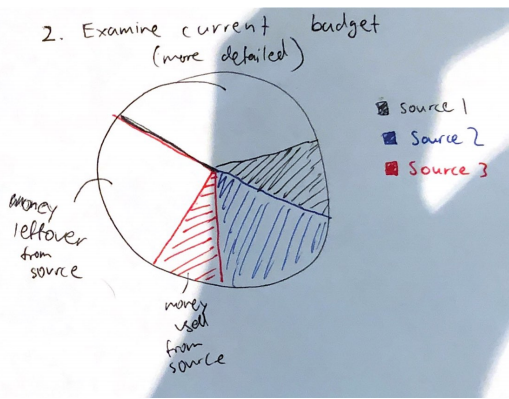 2. Examine current budget
(more detailed)
source 1
Source 2
Source 3
money
leftover
from
source
money
used
from
source